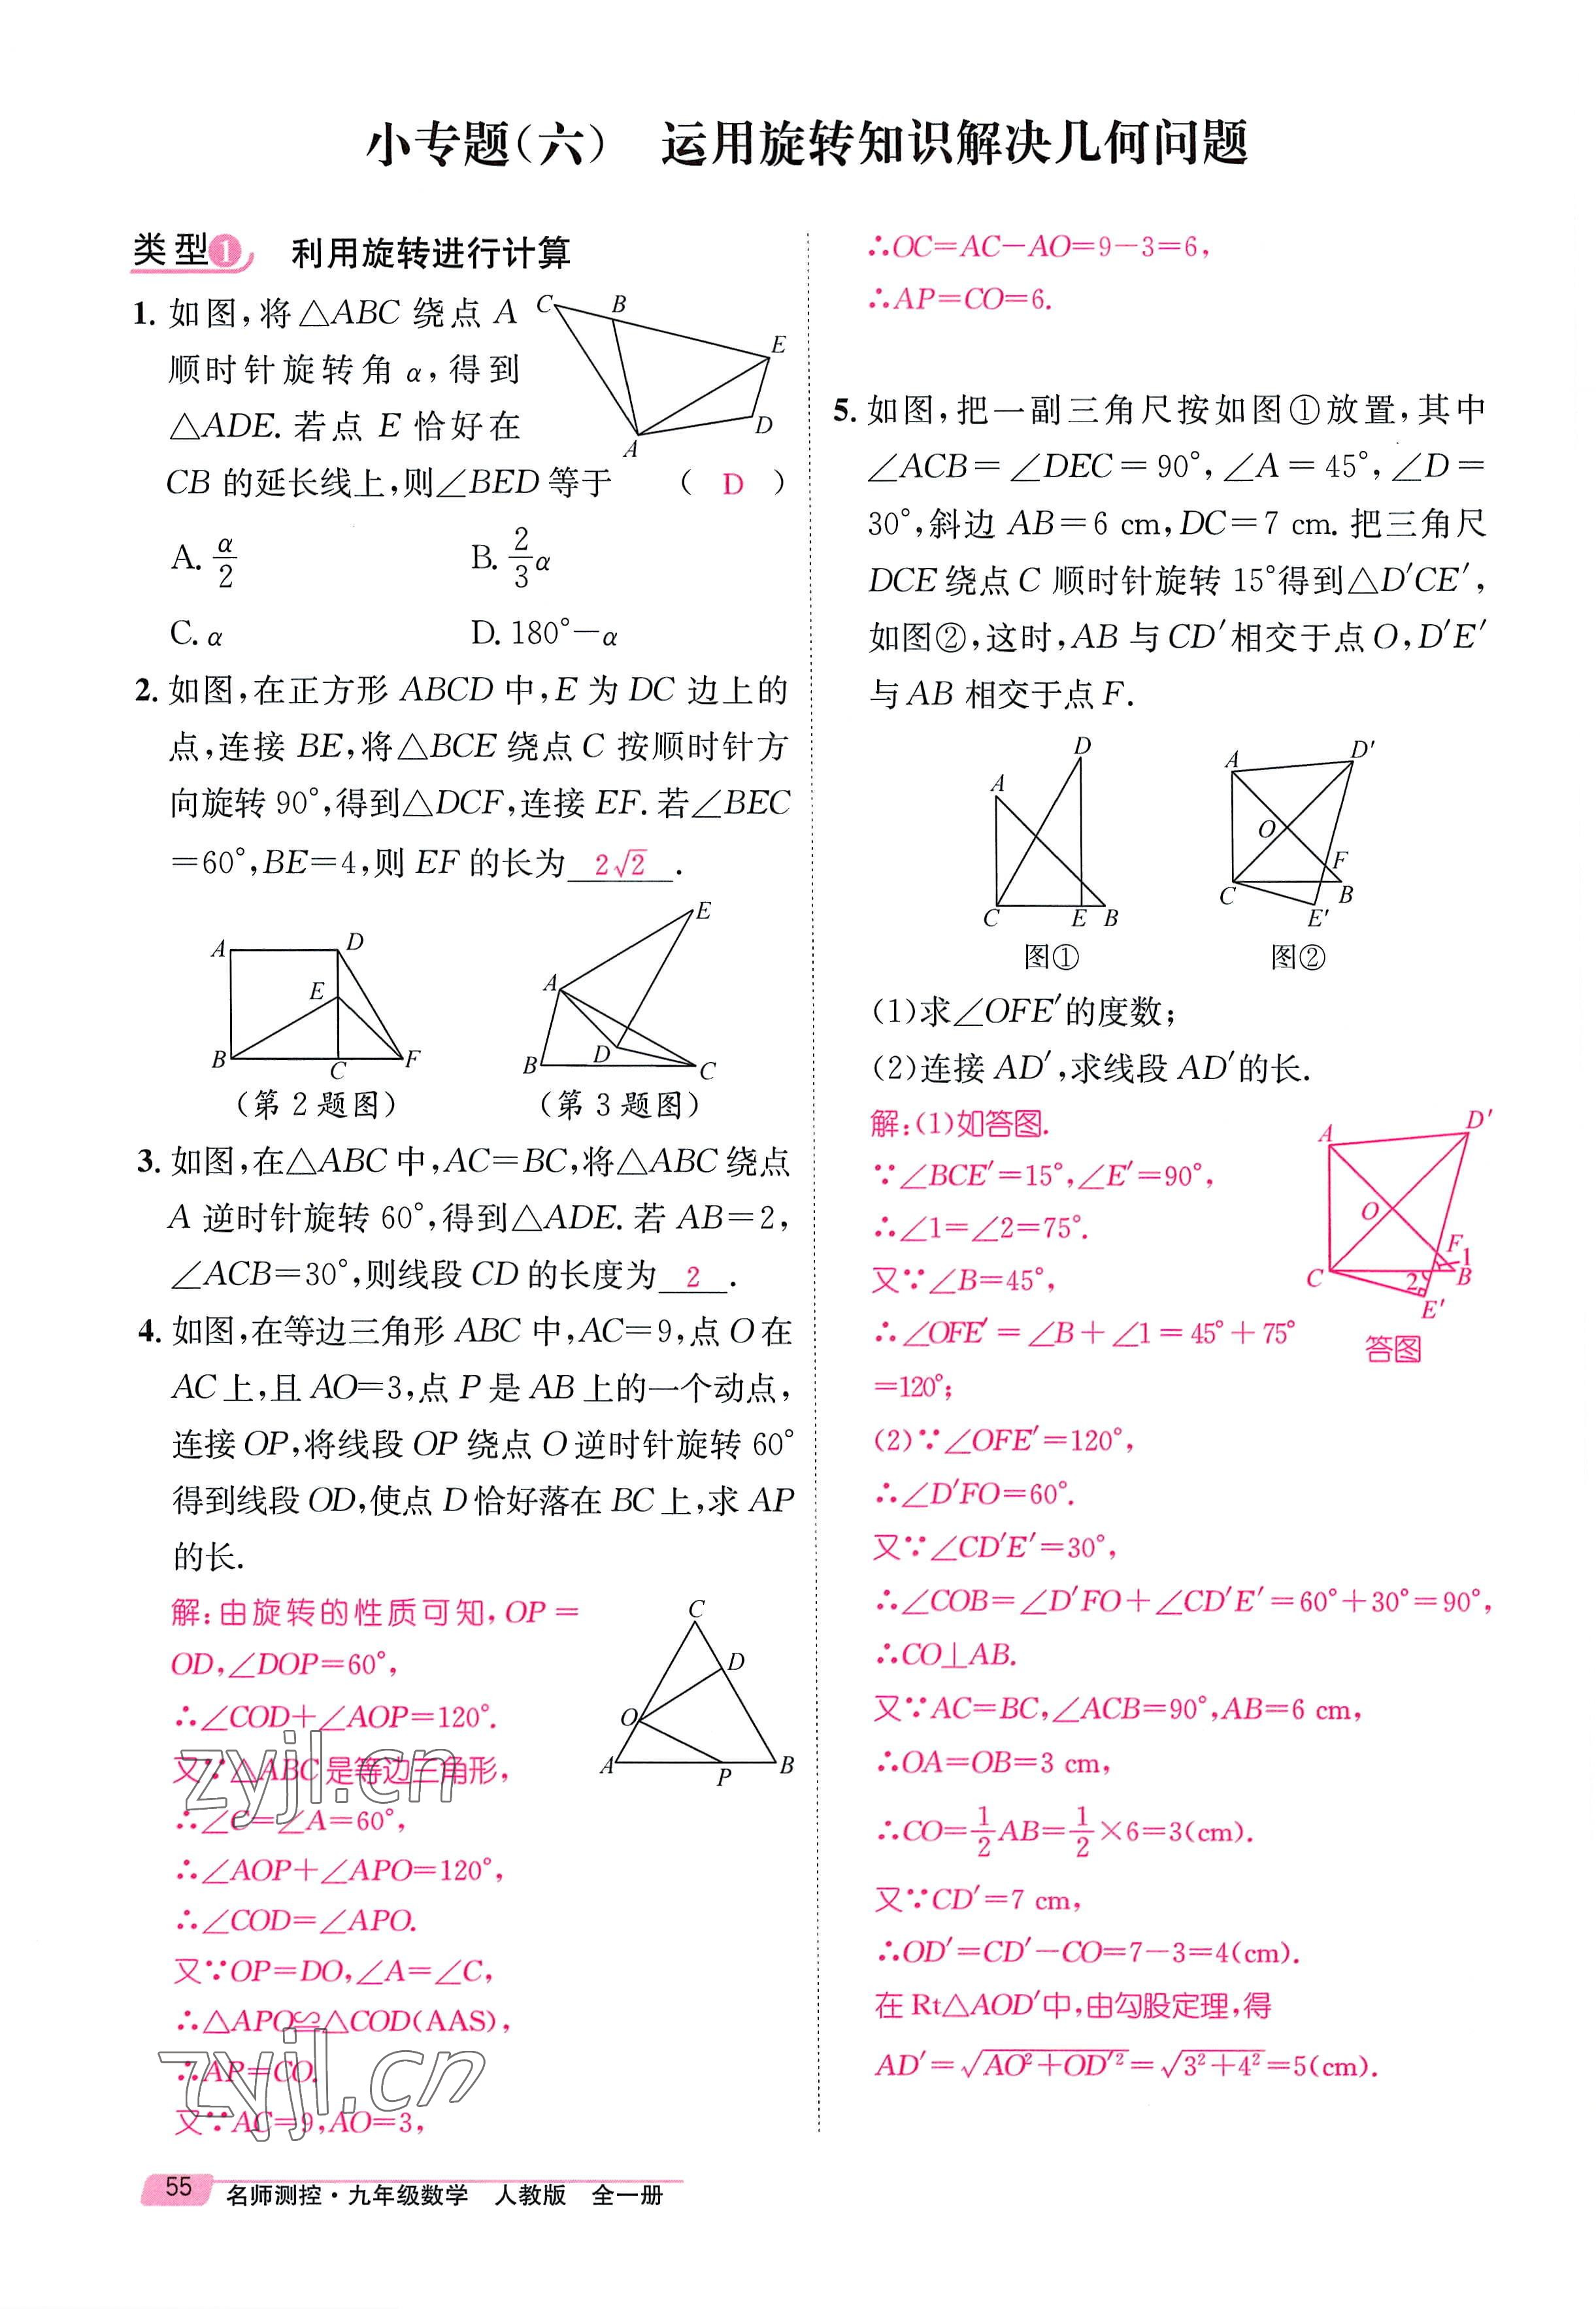 小专题(六) 运用旋转知识解决几何问题
类型1 利用旋转进行计算
1. 如图,将△ABC 绕点 A
顺时针旋转角 α,得到
△ADE. 若点 E 恰好在
CB 的延长线上,则∠BED 等于 ( D )
C B E D A
A. α/2 B. 2/3 α
C. α D. 180°－α
2. 如图,在正方形 ABCD 中,E 为 DC 边上的
点,连接 BE,将△BCE 绕点 C 按顺时针方
向旋转 90°,得到△DCF,连接 EF. 若∠BEC
=60°,BE=4,则 EF 的长为 2√2 .
A D E B C F
E A B D C
(第 2 题图) (第 3 题图)
3. 如图,在△ABC 中,AC=BC,将△ABC 绕点
A 逆时针旋转 60°,得到△ADE. 若 AB=2,
∠ACB=30°,则线段 CD 的长度为 2 .
4. 如图,在等边三角形 ABC 中,AC=9,点 O 在
AC 上,且 AO=3,点 P 是 AB 上的一个动点,
连接 OP,将线段 OP 绕点 O 逆时针旋转 60°
得到线段 OD,使点 D 恰好落在 BC 上,求 AP
的长.
解:由旋转的性质可知,OP=
OD,∠DOP=60°,
∴∠COD+∠AOP=120°.
又∵△ABC 是等边三角形,
∴∠C=∠A=60°,
∴∠AOP+∠APO=120°,
∴∠COD=∠APO.
又∵OP=DO,∠A=∠C,
∴△APO≌△COD(AAS),
∴AP=CO.
又∵AC=9,AO=3,
C D O A P B
zyjl.cn
zyjl.cn
∴OC=AC－AO=9－3=6,
∴AP=CO=6.
5. 如图,把一副三角尺按如图①放置,其中
∠ACB=∠DEC=90°,∠A=45°,∠D=
30°,斜边 AB=6 cm,DC=7 cm. 把三角尺
DCE 绕点 C 顺时针旋转 15°得到△D′CE′,
如图②,这时,AB 与 CD′相交于点 O,D′E′
与 AB 相交于点 F.
D A C E B
A D′ O F C B E′
图① 图②
(1)求∠OFE′的度数;
(2)连接 AD′,求线段 AD′的长.
解:(1)如答图.
∵∠BCE′=15°,∠E′=90°,
∴∠1=∠2=75°.
又∵∠B=45°,
∴∠OFE′=∠B+∠1=45°+75°
=120°;
A D′ O F 1 C 2 B E′
答图
(2)∵∠OFE′=120°,
∴∠D′FO=60°.
又∵∠CD′E′=30°,
∴∠COB=∠D′FO+∠CD′E′=60°+30°=90°,
∴CO⊥AB.
又∵AC=BC,∠ACB=90°,AB=6 cm,
∴OA=OB=3 cm,
∴CO=1/2 AB=1/2×6=3(cm).
又∵CD′=7 cm,
∴OD′=CD′－CO=7－3=4(cm).
在 Rt△AOD′中,由勾股定理,得
AD′=√(AO²+OD′²)=√(3²+4²)=5(cm).
55 名师测控·九年级数学 人教版 全一册